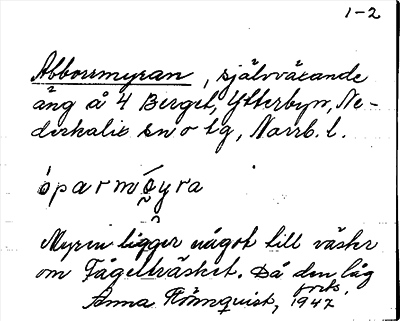 1-2
Abborrmyran, självväxande
äng å 4 Berget, Ytterbyn, Ne-
derkalix sn o tg, Norrb. l.
óparmyra
Myren ligger något till väster
om Fågelträsket. Då den låg
Anna Rönnquist, 1947